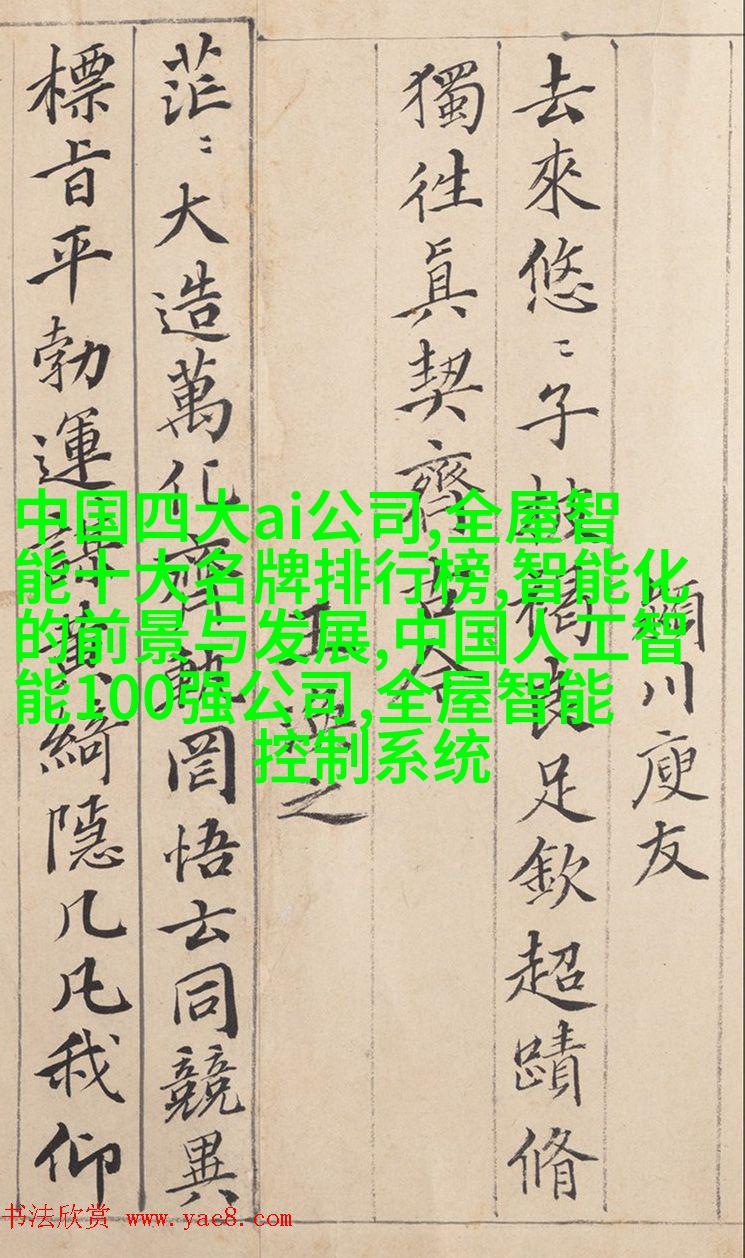 川庾友
去來悠〻子披褐良足欽超蹟脩
獨徃眞契齊古今
王渙之
茫〻大造萬化齊軌罔悟玄同競異
標旨平勃運謀黃綺隱几凡我仰
中国四大ai公司,全屋智
能十大名牌排行榜,智能化
的前景与发展,中国人工智
能100强公司,全屋智能
控制系统
书法欣赏 www.yac8.com